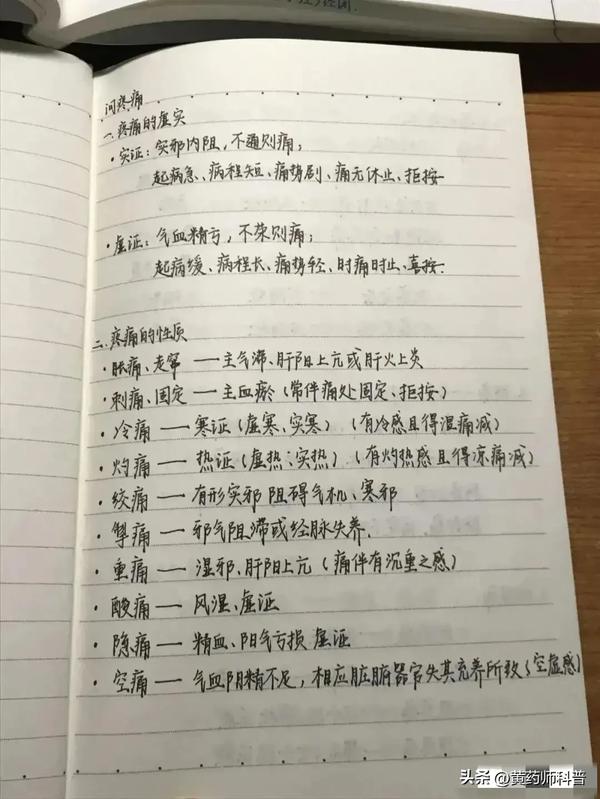 问疼痛
一.疼痛的虚实
·实证：实邪内阻，不通则痛；
起病急、病程短、痛势剧、痛无休止、拒按
·虚证：气血精亏，不荣则痛；
起病缓、病程长、痛势轻、时痛时止、喜按.
二.疼痛的性质
·胀痛、走窜——主气滞、肝阳上亢或肝火上炎
·刺痛、固定——主血瘀（常伴痛处固定、拒按）
·冷痛——寒证（虚寒、实寒）（有冷感且得温痛减）
·灼痛——热证（虚热；实热）（有灼热感且得凉痛减）
·绞痛——有形实邪阻碍气机、寒邪
·掣痛——邪气阻滞或经脉失养.
·重痛——湿邪、肝阳上亢（痛伴有沉重之感）
·酸痛——风湿、虚证
·隐痛——精血、阳气亏损 虚证
·空痛——气血阴精不足，相应脏腑器官失其充养所致（空虚感）
头条 @黄药师科普